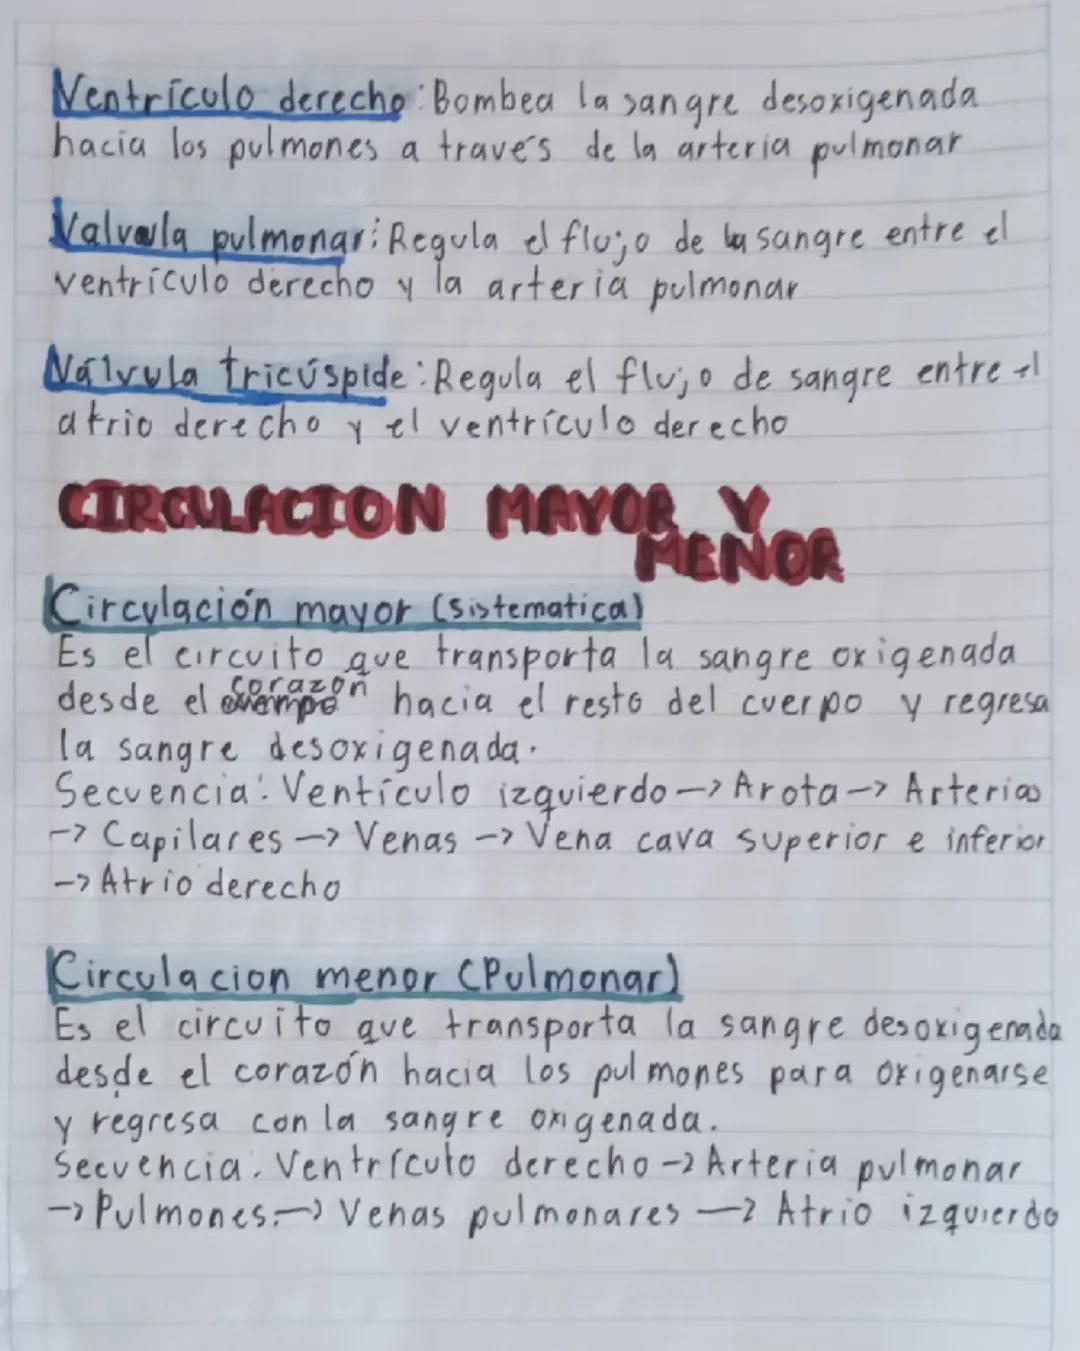 Ventrículo derecho: Bombea la sangre desoxigenada
hacia los pulmones a través de la arteria pulmonar
Valvula pulmonar: Regula el flujo de la sangre entre el
ventrículo derecho y la arteria pulmonar
Válvula tricúspide: Regula el flujo de sangre entre el
atrio derecho y el ventrículo derecho
CIRCULACION MAYOR Y
MENOR
Circulación mayor (sistematica)
Es el circuito que transporta la sangre oxigenada
desde el corazón hacia el resto del cuerpo y regresa
la sangre desoxigenada.
Secuencia: Ventículo izquierdo -> Arota -> Arterias
-> Capilares -> Venas -> Vena cava superior e inferior
-> Atrio derecho
Circulacion menor (Pulmonar)
Es el circuito que transporta la sangre desoxigenada
desde el corazón hacia los pulmones para oxigenarse
y regresa con la sangre oxigenada.
Secuencia. Ventrículo derecho -> Arteria pulmonar
-> Pulmones. -> Venas pulmonares -> Atrio izquierdo